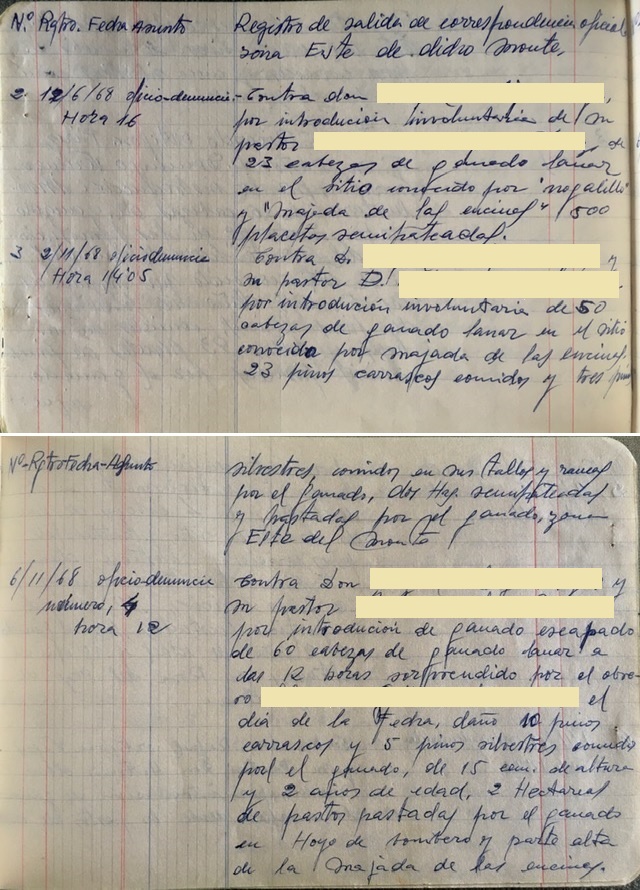 Nº Rgtro. Fecha Asunto
Registro de salida de correspondencia oficial
zona Este de dicho Monte,
2 12/6/68 oficio-denuncia-
Hora 16
Contra don
por introdución involuntaria de su
pastor de
23 cabezas de ganado lanar
en el sitio conocido por "nogalillo
y "Majada de las encinas" 1500
placetas semipateadas.
3 2/11/68 oficio denuncia
Hora 14'05
Contra D. y
su pastor D.
por introdución involuntaria de 50
cabezas de ganado lanar en el sitio
conocido por Majada de las encinas,
23 pinos carrascos comidos y tres pinos
Nº-Rgtro Fecha-Asunto
silvestres, comidos en sus tallos y ramas
por el ganado, dos Has. semipateadas
y pastadas por el ganado, zona
Este del Monte
6/11/68 oficio-denuncia
número, 4
hora 12
Contra Don y
su pastor
por introdución de ganado escapado
de 60 cabezas de ganado lanar a
las 12 horas sorprendido por el obre-
ro el
día de la Fecha, daño 10 pinos
carrascos y 5 pinos silvestres comido
por el ganado, de 15 cm. de altura
y 2 años de edad, 2 Hectareas
de pastos pastadas por el ganado
en Hoyo de sombrero y parte alta
de la Majada de las encinas.